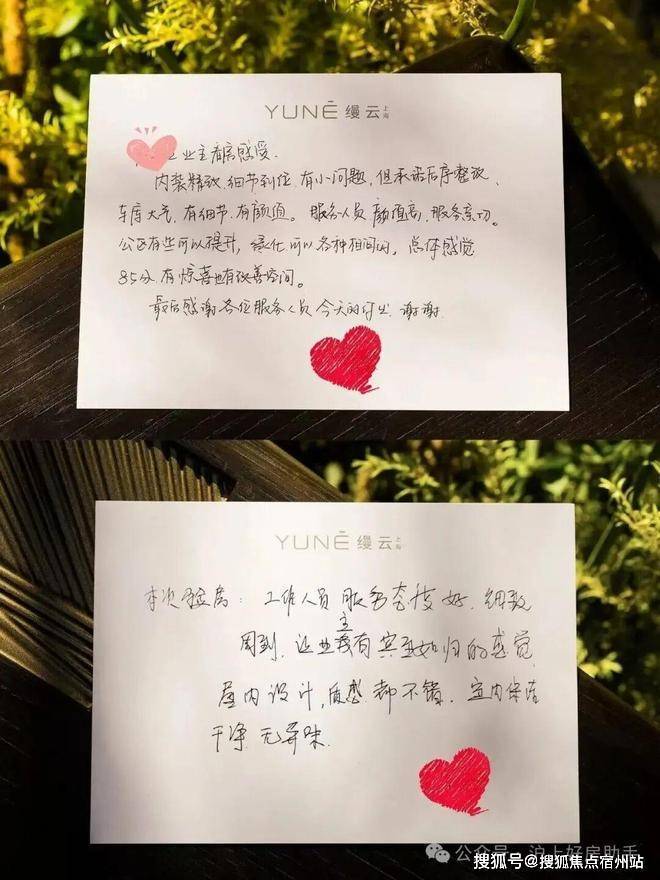 YUNĒ 缦云 上海
业主看房感受.
内装精致.细节到位.有小问题,但承诺后序整改.
车库大气.有细节.有颜值。服务人员颜值高,服务亲切。
公区有些可以提升,绿化可以各种相间的。总体感觉
85分有惊喜也有改善空间。
最后感谢各位服务人员今天的付出 谢谢
YUNĒ 缦云 上海
本次验房:工作人员服务态度好.细致
周到.让业主我有宾至如归的感觉
屋内设计,质感都不错.室内保洁
干净.无异味.
公众号·沪上好房助手
搜狐号@搜狐焦点宿州站